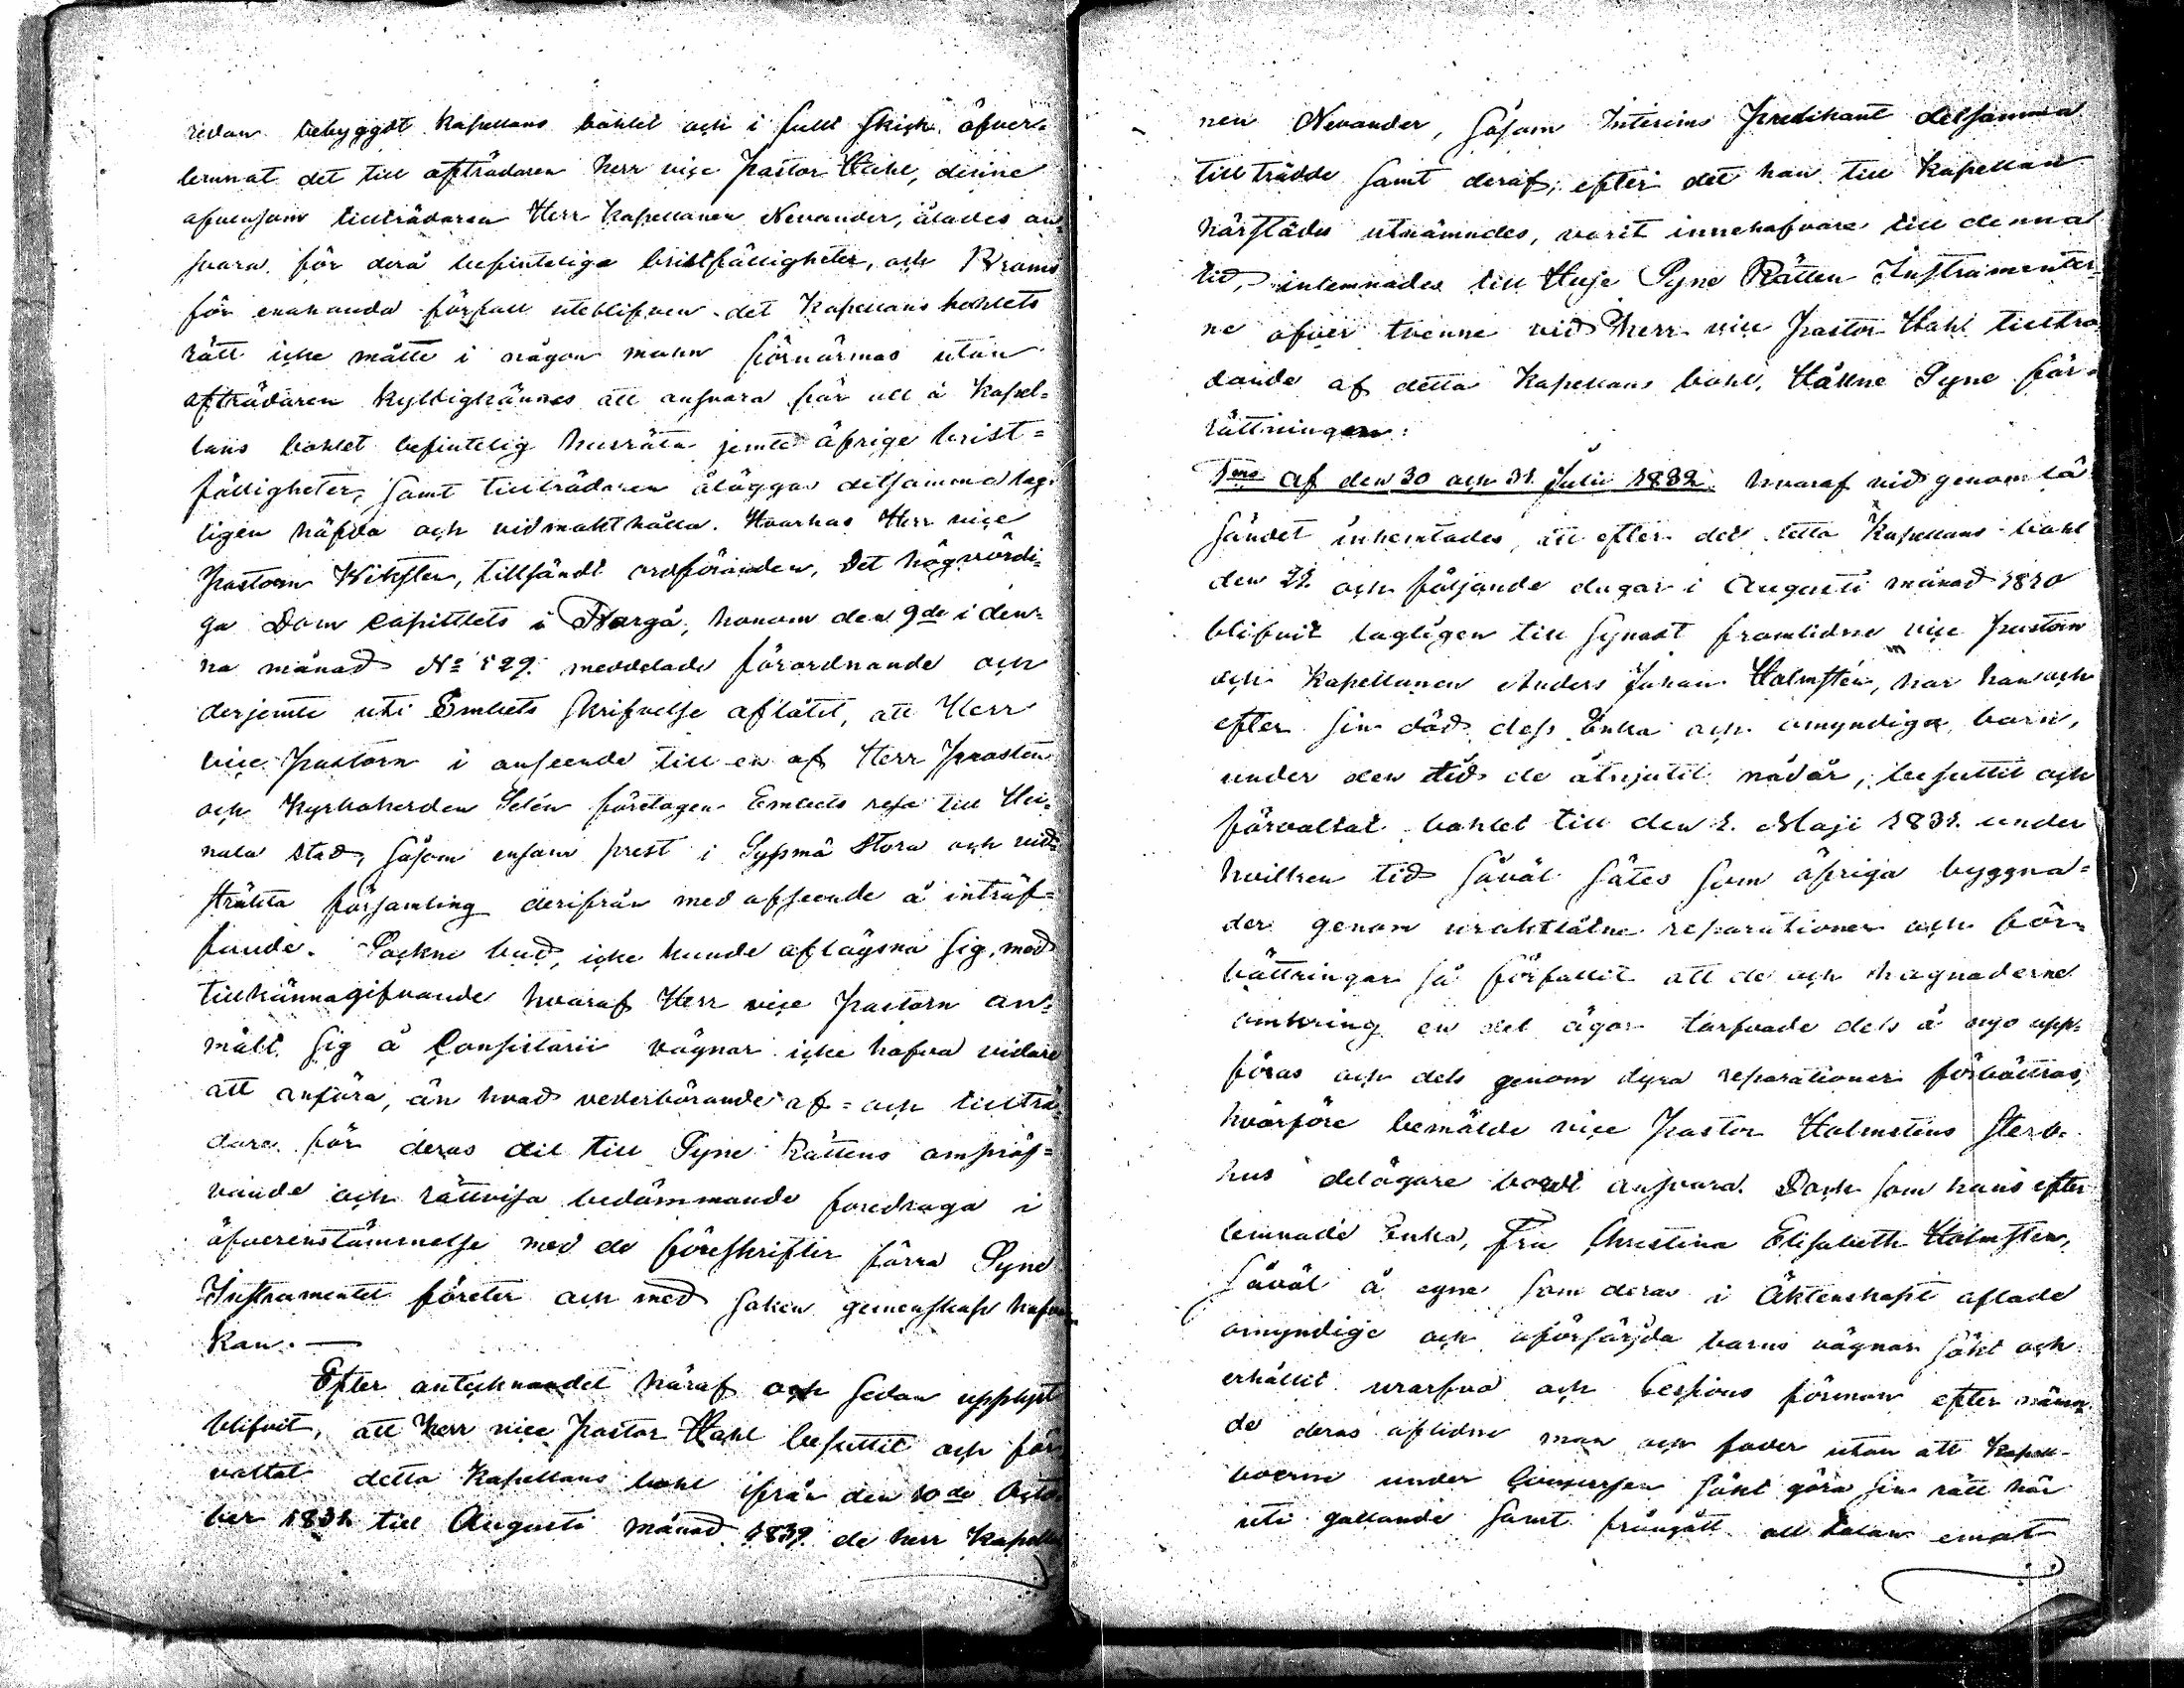 redan bebyggdt Kapellans bohlet och i fullt skick öfver-
lemnat det till afträdaren Herr vice Pastor Hahl, denne
äfvensom tillträdaren Herr Kapellanen Nevander, ålades an-
svara för derå befinteliga bristfälligheter, och
för enahanda förfall uteblifven det Kapellans bohlets
rätt icke måtte i någon mohn förnärmas utan
afträdaren skyldigkännas att ansvara för all å Kapel-
lans bohlet befintelig husröta jemte öfrige brist-
fälligheter, samt tillträdaren åläggas detsamma lag-
ligen häfda och vidmakthålla. Hvarhos Herr vice
Pastorn Wiksten, tillsändt ordföranden, Det högvördi-
ga Dom Capitlets i Borgå, honom den 9de i den-
na månad No 529. meddelade förordnande och
derjemte uti Embets skrifvelse aflåtit, att Herr
vice Pastorn i anseende till en af Herr Prosten
och Kyrkoherden Selén företagen Embets resa till Hei-
nola stad, såsom ensam prest i Sysmä stora och vid-
sträkta församling derifrån med afseende å inträf-
fande Sockne bud, icke kunde aflägsna sig, med
tillkännagifvande hvaraf Herr vice Pastorn an-
mält sig å Consistorii vägnar icke hafva vidare
att anföra, än hvad vederbörande af- och tillträ-
dare för deras del till Syne Rättens ompröf-
vande och rättvisa bedömmande föredraga i
öfverenstämmelse med de föreskrifter förra Syne
Instrumentet företer och med saken gemenskap hafva
kan. —
Efter antecknandet häraf och sedan upplyst
blifvit, att Herr vice Pastor Hahl besuttit och för-
valtat detta Kapellans bohl ifrån den 10de Octo-
ber 1831 till Augusti månad 1839 de herr Kapella
nen Nevander, såsom Interims Predikant detsamma
tillträdde samt deraf, efter det han till Kapellan
härstädes utnämndes, varit innehafvare till denna
tid, inlemnades till Syne Rätten Instrumenter-
ne öfver tvenne vid Herr vice Pastor Hahl tillträ-
dande af detta Kapellans bohl, Hållne Syne för-
rättningar:
1mo af den 30 och 31 Julii 1832. hvaraf vid genomlä-
sandet inhemtades, att efter det detta Kapellans bohl
den 21 och följande dagar i Augusti månad 1820
blifvit lagligen till synat framlidne vice Pastorn
och Kapellanen Anders Johan Holmstén, har han och
efter sin död dess Enka och omyndiga barn,
under den tid de åtnjutit nådår, besuttit och
förvaltat bohlet till den 1. Maji 1831. under
hvilken tid såväl sätes som öfriga byggna-
der genom uraktlåtne reparationer och för-
bättringar så förfallit att de och hagnaderne
omkring en del ägor tarfvade dels å nyo upp-
föras och dels genom dyra reparationer förbättras,
hvarföre bemälde vice Pastor Holmsténs sterb-
hus delägare bordt ansvara. Dock som hans efter-
lemnade Enka, Fru Christina Elisabeth Holmsten,
såväl å egne som deras i Äktenskapet aflade
omyndige och oförsörjda barns vägnar sökt och
erhållit urarfva och Cessions förmon efter nämn-
de deras aflidne man och fader utan att Kapell-
boerne under Concursen sökt göra sin rätt här
uti gällande samt frångått all talan emot